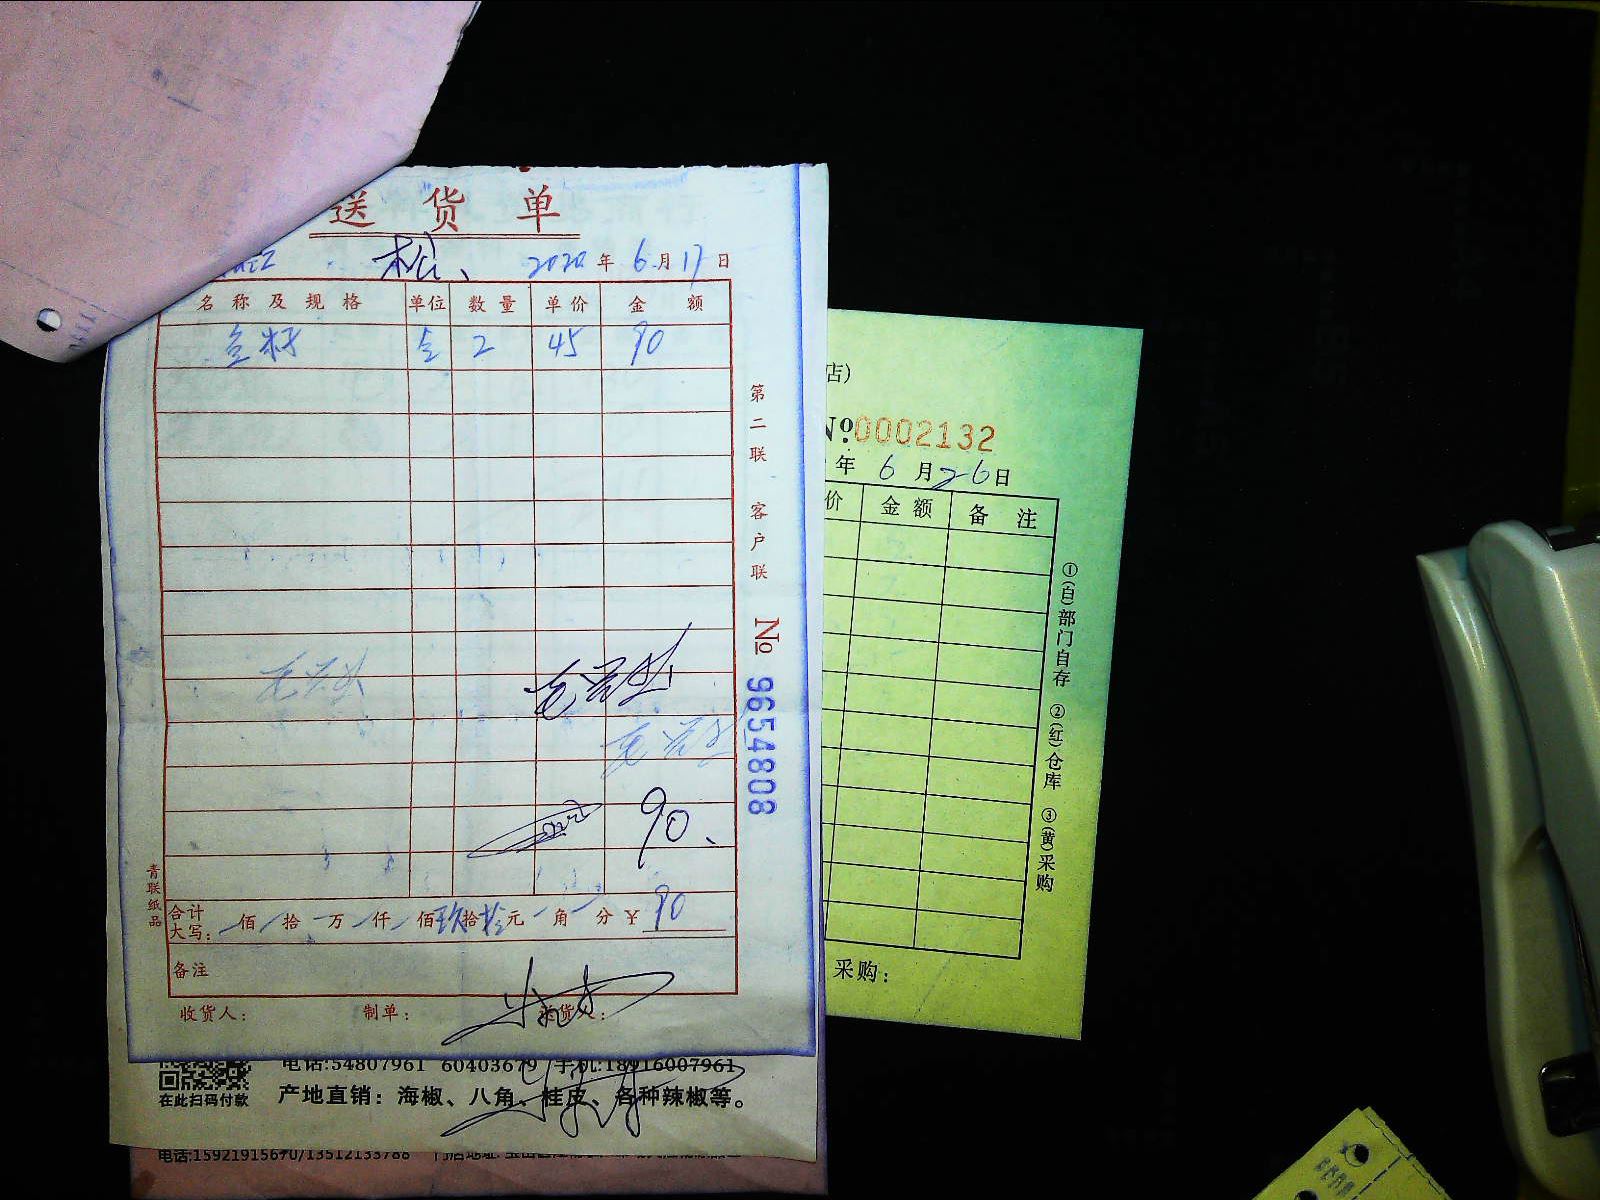 送货单
松、 2020年6月17日
名称及规格 单位 数量 单价 金额
2 45 90
第二联 客户联
No 9654808
90、
青联纸品
合计大写: 佰 拾 万 仟 佰玖拾 元 角 分 ¥ 90
备注
收货人: 制单: 送货人:
电话:54807961 60403679 /手机:18916007961
在此扫码付款
产地直销:海椒、八角、桂皮、各种辣椒等。
电话:15921915670/13512133788
店)
№0002132
年 6月26日
价 金额 备注
①(白)部门自存 ②(红)仓库 ③(黄)采购
采购: